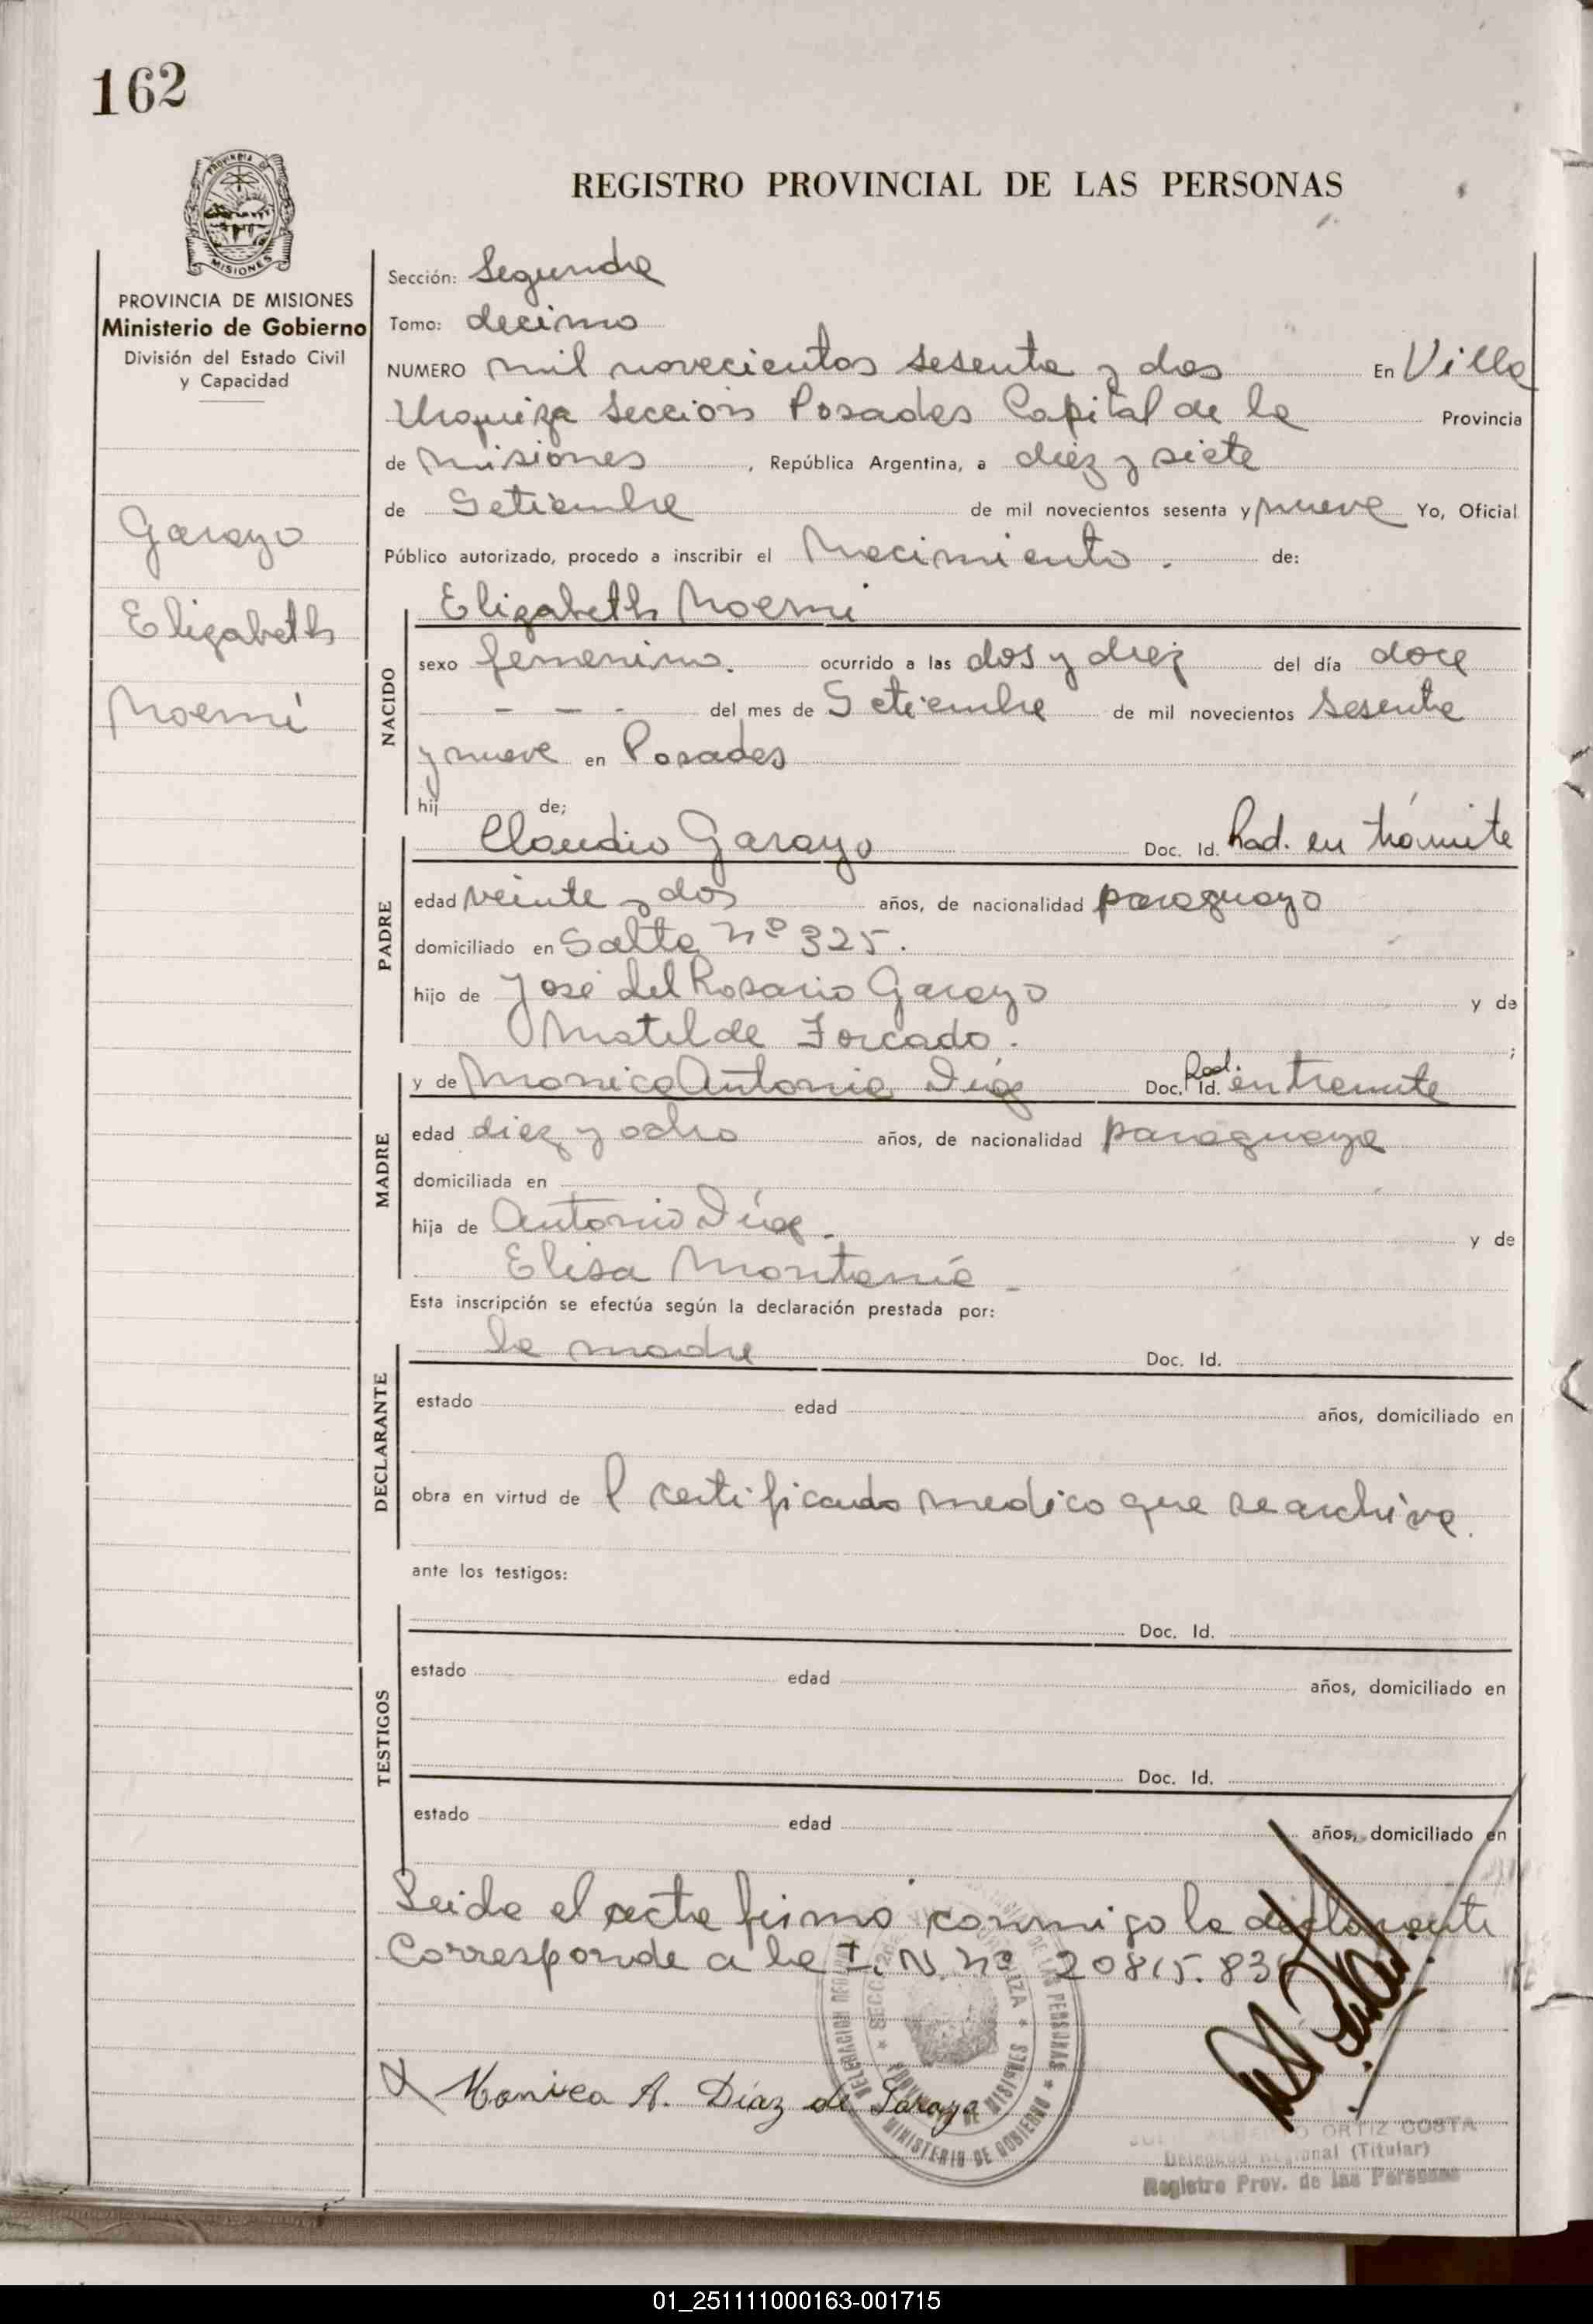 162
REGISTRO PROVINCIAL DE LAS PERSONAS
PROVINCIA DE MISIONES
Ministerio de Gobierno
División del Estado Civil
y Capacidad
Garayo
Elizabeth
Noemí
Sección: Segunda
Tomo: decimo
NUMERO mil novecientos sesenta y dos En Villa
Urquiza Seccion Posadas Capital de la Provincia
de Misiones, República Argentina, a diez y siete
de Setiembre de mil novecientos sesenta y nueve Yo, Oficial
Público autorizado, procedo a inscribir el Nacimiento. de:
NACIDO
Elizabeth Noemi
sexo femenino. ocurrido a las dos y diez del día doce
- - - del mes de Setiembre de mil novecientos sesenta
y nueve en Posadas
hij de;
PADRE
Claudio Garayo Doc. Id. Rad. en trámite
edad veinte y dos años, de nacionalidad paraguayo
domiciliado en Salta nº 325.
hijo de José del Rosario Garayo y de
Matilde Forcado. ;
MADRE
y de Monica Antonia Díaz Doc. Id. Rad. en tramite
edad diez y ocho años, de nacionalidad paraguaya
domiciliada en
hija de Antonio Díaz. y de
Elisa Montanía -
Esta inscripción se efectúa según la declaración prestada por:
DECLARANTE
la madre Doc. Id.
estado edad años, domiciliado en
obra en virtud de l certificado medico que se archiva.
ante los testigos:
TESTIGOS
Doc. Id.
estado edad años, domiciliado en
Doc. Id.
estado edad años, domiciliado en
Leida el acta firmó conmigo la declarante
Corresponde a la I. N. nº 20815.83
X Monica A. Díaz de Garayo
MINISTERIO DE GOBIERNO
PROVINCIA DE MISIONES
ORTIZ COSTA
Delegado Regional (Titular)
Registro Prov. de las Personas
01_251111000163-001715